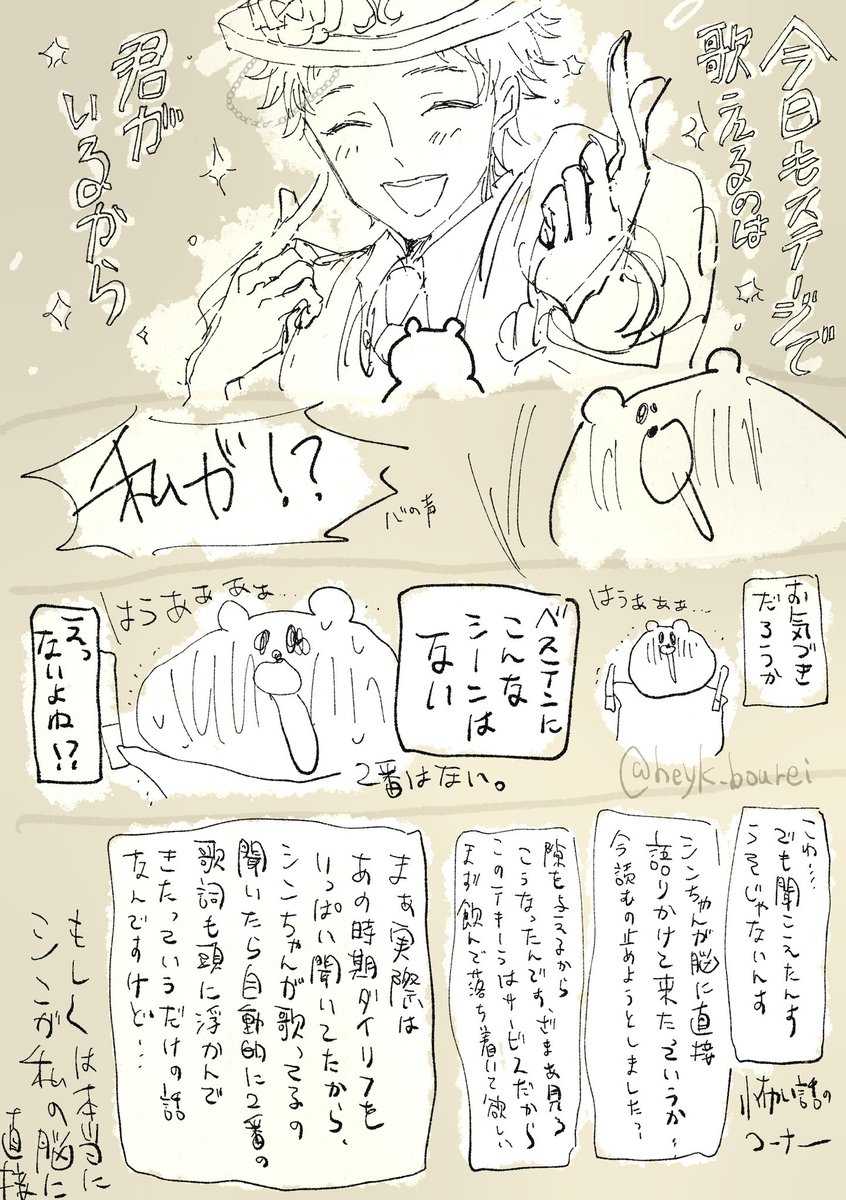 今日もステージで
歌えるのは
君が
いるから
私が!?
心の声
お気づき
だろうか
はうぁぁぁ…
ベステンに
こんな
シーンは
ない
はうあぁぁぁぁ…
えっ
ないよね!?
2番はない。
@heyk_bourei
こわ…
でも聞こえたんす
うそじゃないんす
怖い話の
コーナー
シンちゃんが脳に直接
語りかけて来たっていうか…
今読むの止めようとしました?
隙を与えるから
こうなったんです、ざまあ見ろ
このテキーラはサービスだから
まず飲んで落ち着いて欲しい
まぁ実際は
あの時期ダイリフも
いっぱい聞いてたから、
シンちゃんが歌ってるの
聞いたら自動的に2番の
歌詞も頭に浮かんで
きたっていうだけの話
なんですけど…
もしくは本当に
シンが私の脳に
直接